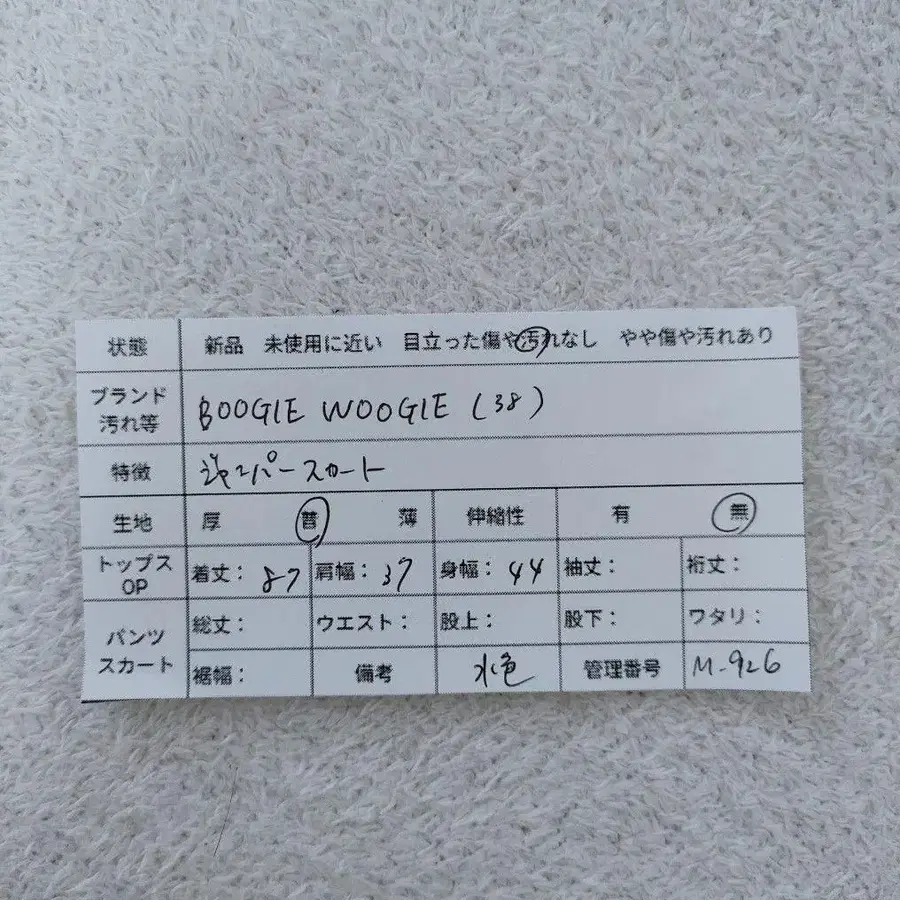 状態 新品 未使用に近い 目立った傷や汚れなし やや傷や汚れあり
ブランド 汚れ等 BOOGIE WOOGIE (38)
特徴 ジャンパースカート
生地 厚 普 薄 伸縮性 有 無
トップス OP 着丈: 87 肩幅: 37 身幅: 44 袖丈: 裄丈:
パンツ スカート 総丈: ウエスト: 股上: 股下: ワタリ:
裾幅: 備考 水色 管理番号 M-926